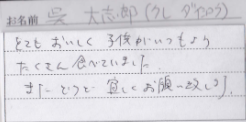 お名前 呉 大志郎(クレ ダイシロウ)
とても おいしく 子供がいつもより
たくさん食べていました。
また どうぞ 宜しくお願い致します。